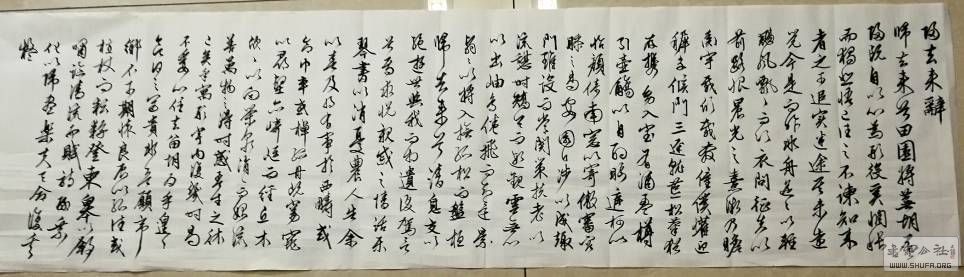 歸去來辭
歸去來兮田園將蕪胡不
歸既自以心為形役奚惆悵
而獨悲悟已往之不諫知來
者之可追實迷途其未遠
覺今是而昨非舟遙遙以輕
颺風飄飄而吹衣問征夫以
前路恨晨光之熹微乃瞻
衡宇載欣載奔僮僕歡迎
稚子候門三徑就荒松菊猶
存攜幼入室有酒盈樽
引壺觴以自酌眄庭柯以
怡顏倚南窗以寄傲審容
膝之易安園日涉以成趣
門雖設而常關策扶老以
流憩時矯首而遐觀雲無心
以出岫鳥倦飛而知還景
翳翳以將入撫孤松而盤桓
歸去來兮請息交以
絕遊世與我而相遺復駕言
兮焉求悅親戚之情話樂
琴書以消憂農人告余
以春及將有事於西疇或
命巾車或棹孤舟既窈窕
以尋壑亦崎嶇而經丘木
欣欣以向榮泉涓涓而始流
善萬物之得時感吾生之行休
已矣乎寓形宇內復幾時曷
不委心任去留胡為乎遑遑
欲何之富貴非吾願帝
鄉不可期懷良辰以孤往或
植杖而耘耔登東皋以舒
嘯臨清流而賦詩聊乘
化以歸盡樂夫天命復奚
疑
WWW.SHUFA.ORG